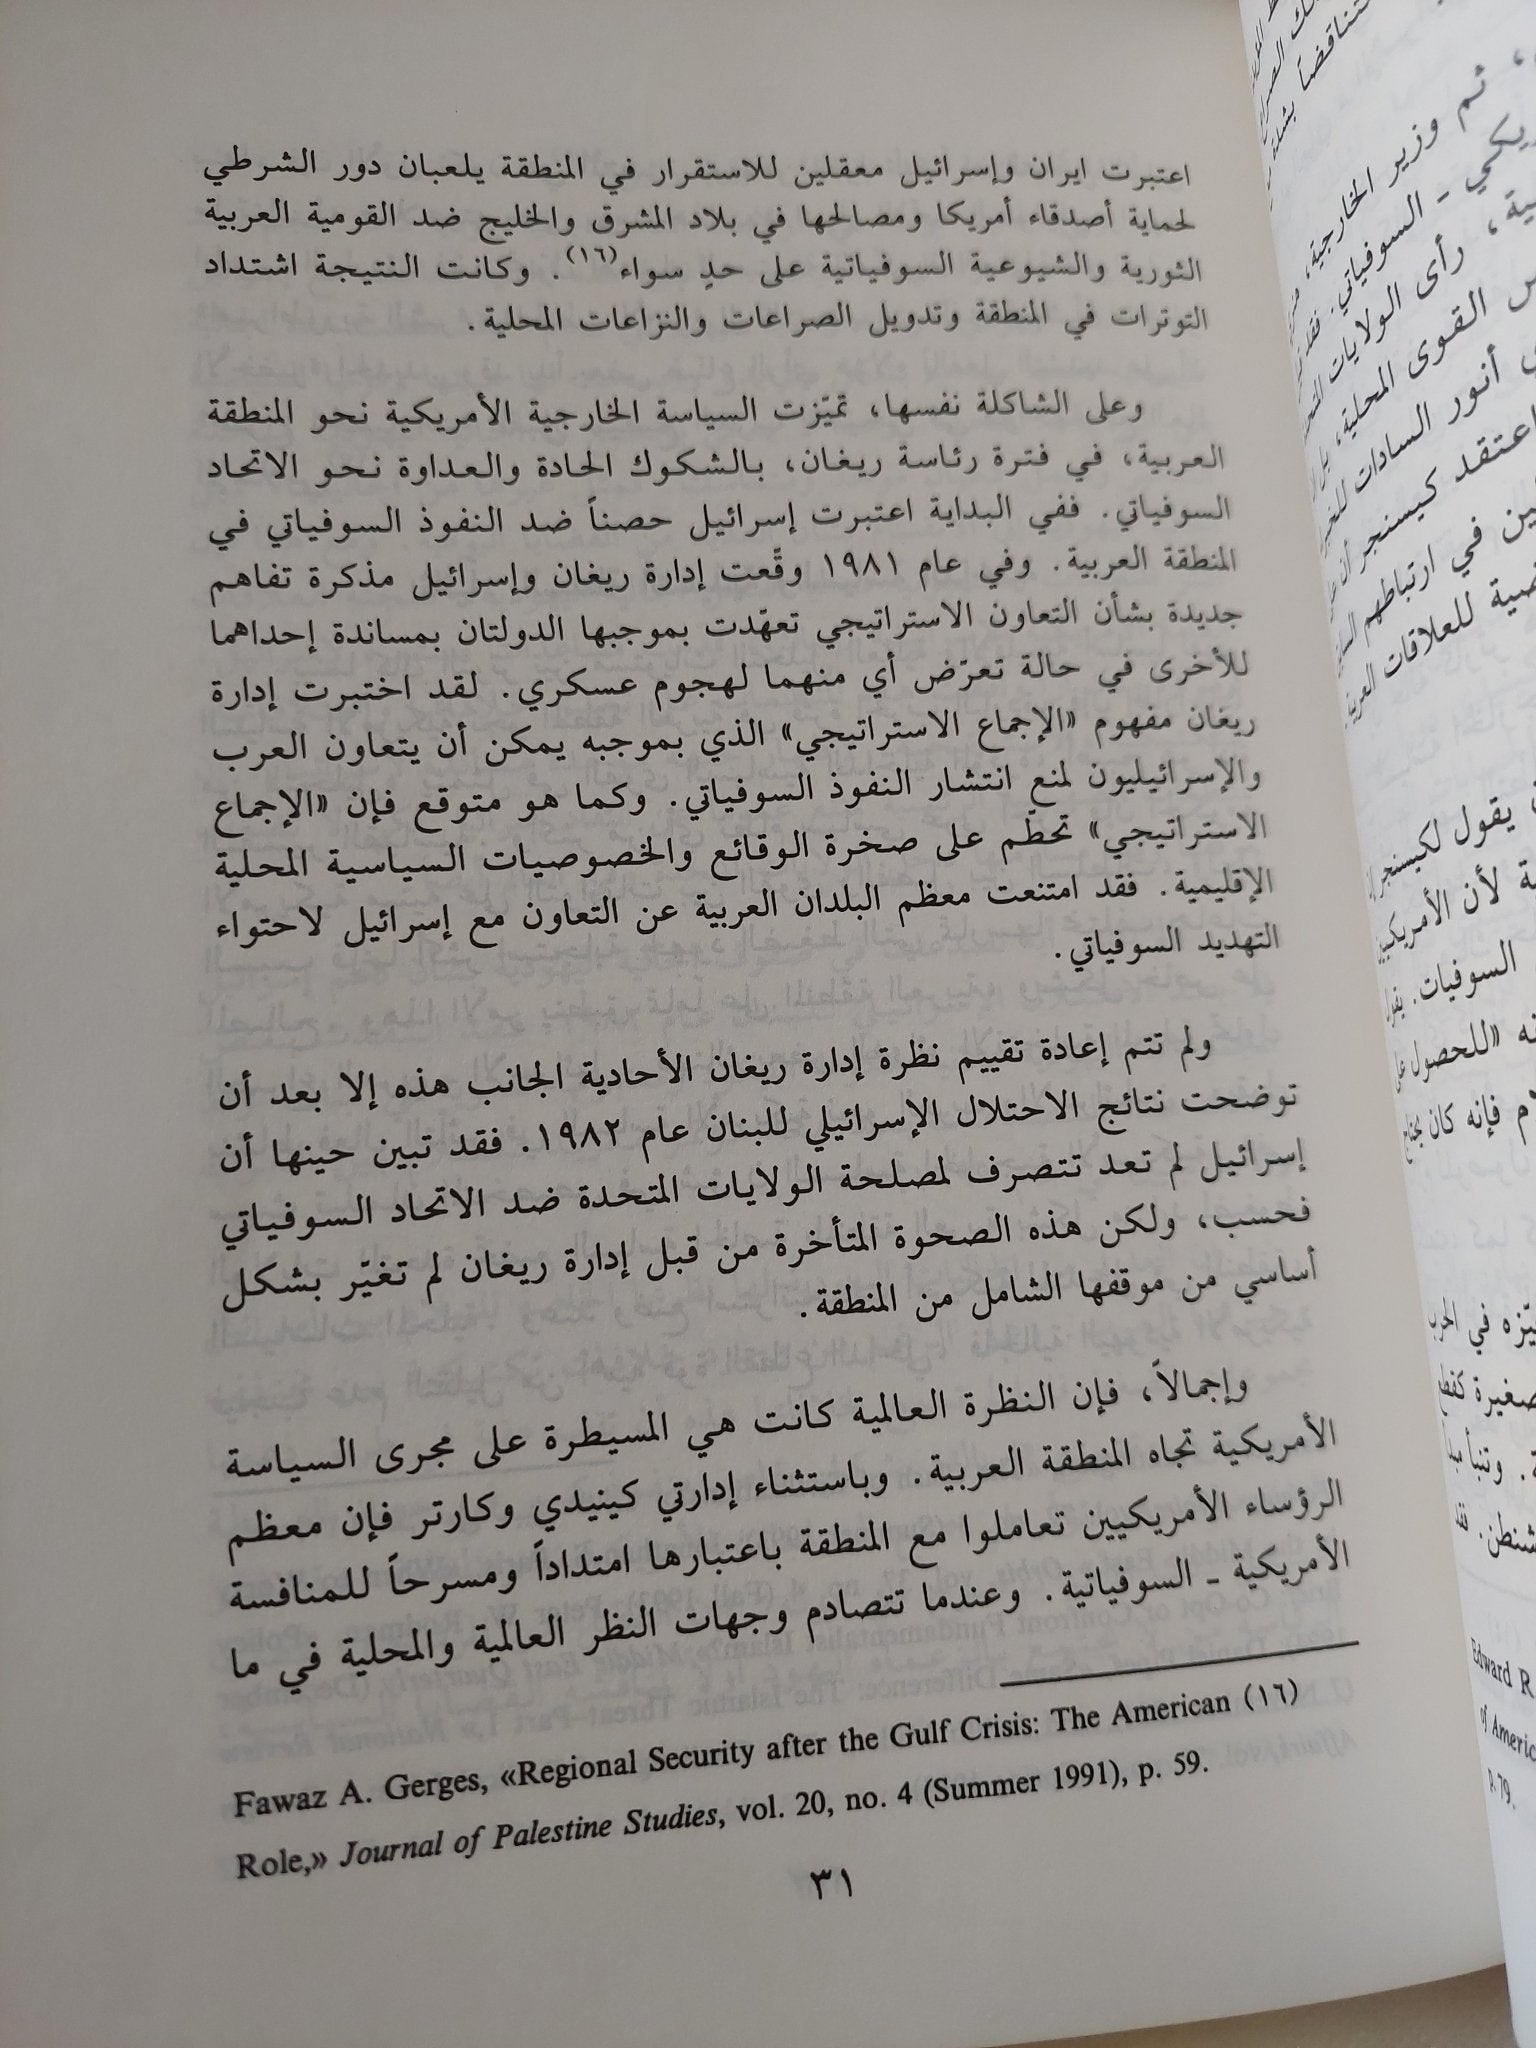 اعتبرت ايران وإسرائيل معقلين للاستقرار في المنطقة يلعبان دور الشرطي
لحماية أصدقاء أمريكا ومصالحها في بلاد المشرق والخليج ضد القومية العربية
الثورية والشيوعية السوفياتية على حدٍ سواء(١٦). وكانت النتيجة اشتداد
التوترات في المنطقة وتدويل الصراعات والنزاعات المحلية.
وعلى الشاكلة نفسها، تميّزت السياسة الخارجية الأمريكية نحو المنطقة
العربية، في فترة رئاسة ريغان، بالشكوك الحادة والعداوة نحو الاتحاد
السوفياتي. ففي البداية اعتبرت إسرائيل حصناً ضد النفوذ السوفياتي في
المنطقة العربية. وفي عام ١٩٨١ وقّعت إدارة ريغان وإسرائيل مذكرة تفاهم
جديدة بشأن التعاون الاستراتيجي تعهّدت بموجبها الدولتان بمساندة إحداهما
للأخرى في حالة تعرّض أي منهما لهجوم عسكري. لقد اختبرت إدارة
ريغان مفهوم «الإجماع الاستراتيجي» الذي بموجبه يمكن أن يتعاون العرب
والإسرائيليون لمنع انتشار النفوذ السوفياتي. وكما هو متوقع فإن «الإجماع
الاستراتيجي» تحطّم على صخرة الوقائع والخصوصيات السياسية المحلية
الإقليمية. فقد امتنعت معظم البلدان العربية عن التعاون مع إسرائيل لاحتواء
التهديد السوفياتي.
ولم تتم إعادة تقييم نظرة إدارة ريغان الأحادية الجانب هذه إلا بعد أن
توضحت نتائج الاحتلال الإسرائيلي للبنان عام ١٩٨٢. فقد تبين حينها أن
إسرائيل لم تعد تتصرف لمصلحة الولايات المتحدة ضد الاتحاد السوفياتي
فحسب، ولكن هذه الصحوة المتأخرة من قبل إدارة ريغان لم تغيّر بشكل
أساسي من موقفها الشامل من المنطقة.
وإجمالاً، فإن النظرة العالمية كانت هي المسيطرة على مجرى السياسة
الأمريكية تجاه المنطقة العربية. وباستثناء إدارتي كينيدي وكارتر فإن معظم
الرؤساء الأمريكيين تعاملوا مع المنطقة باعتبارها امتداداً ومسرحاً للمنافسة
الأمريكية ـ السوفياتية. وعندما تتصادم وجهات النظر العالمية والمحلية في ما
Fawaz A. Gerges, «Regional Security after the Gulf Crisis: The American (١٦)
Role,» Journal of Palestine Studies, vol. 20, no. 4 (Summer 1991), p. 59.
٣١
ثم وزير الخارجية،
ـ السوفياتي. فقد
رأى الولايات
القوى المحلية،
أنور السادات
اعتقد كيسنجر أن
في ارتباطهم
للعلاقات
يقول لكيسنجر
لأن الأمريكيين
السوفيات. يقول
«للحصول على
فإنه كان
في الحرب
صغيرة
وتنبأ
Edward R.
of
p. 79.